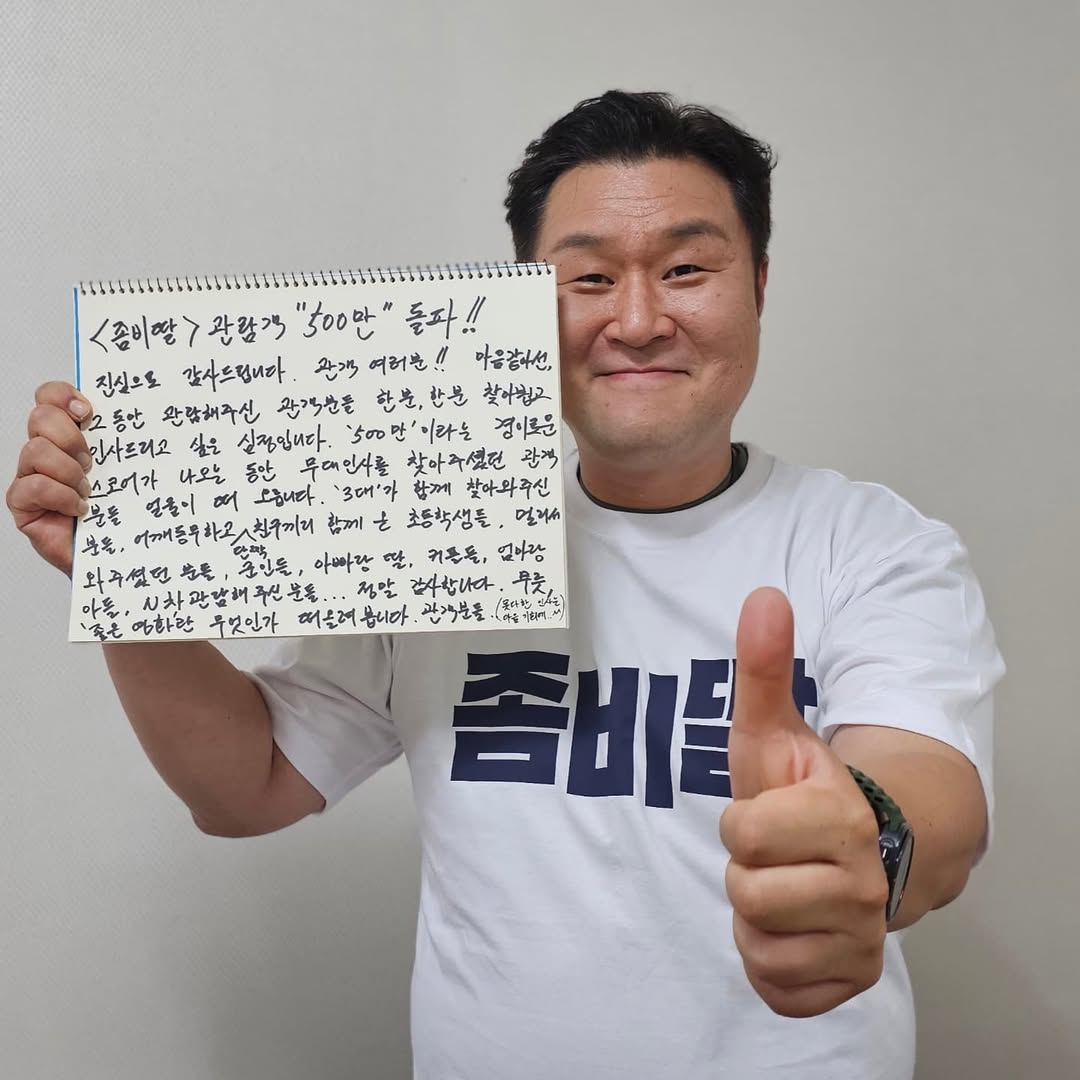 <좀비딸> 관람객 "500만" 돌파!!
진심으로 감사드립니다. 관객 여러분!! 마음같아선,
그동안 관람해주신 관객분들 한분, 한분 찾아뵙고
인사드리고 싶은 심정입니다. '500만'이라는 경이로운
스코어가 나오는 동안 무대인사를 찾아주셨던 관객
분들 얼굴이 떠 오릅니다. '3대'가 함께 찾아와주신
분들, 어깨동무하고 단짝 친구끼리 함께 온 초등학생들, 멀리서
와주셨던 분들, 군인들, 아빠랑 딸, 커플들, 엄마랑
아들, N차 관람해 주신 분들... 정말 감사합니다. 무릇,
'좋은 영화란 무엇인가 떠올려 봅니다. 관객분들. (못다한 인사는
다음 기회에..^^)
좀비딸